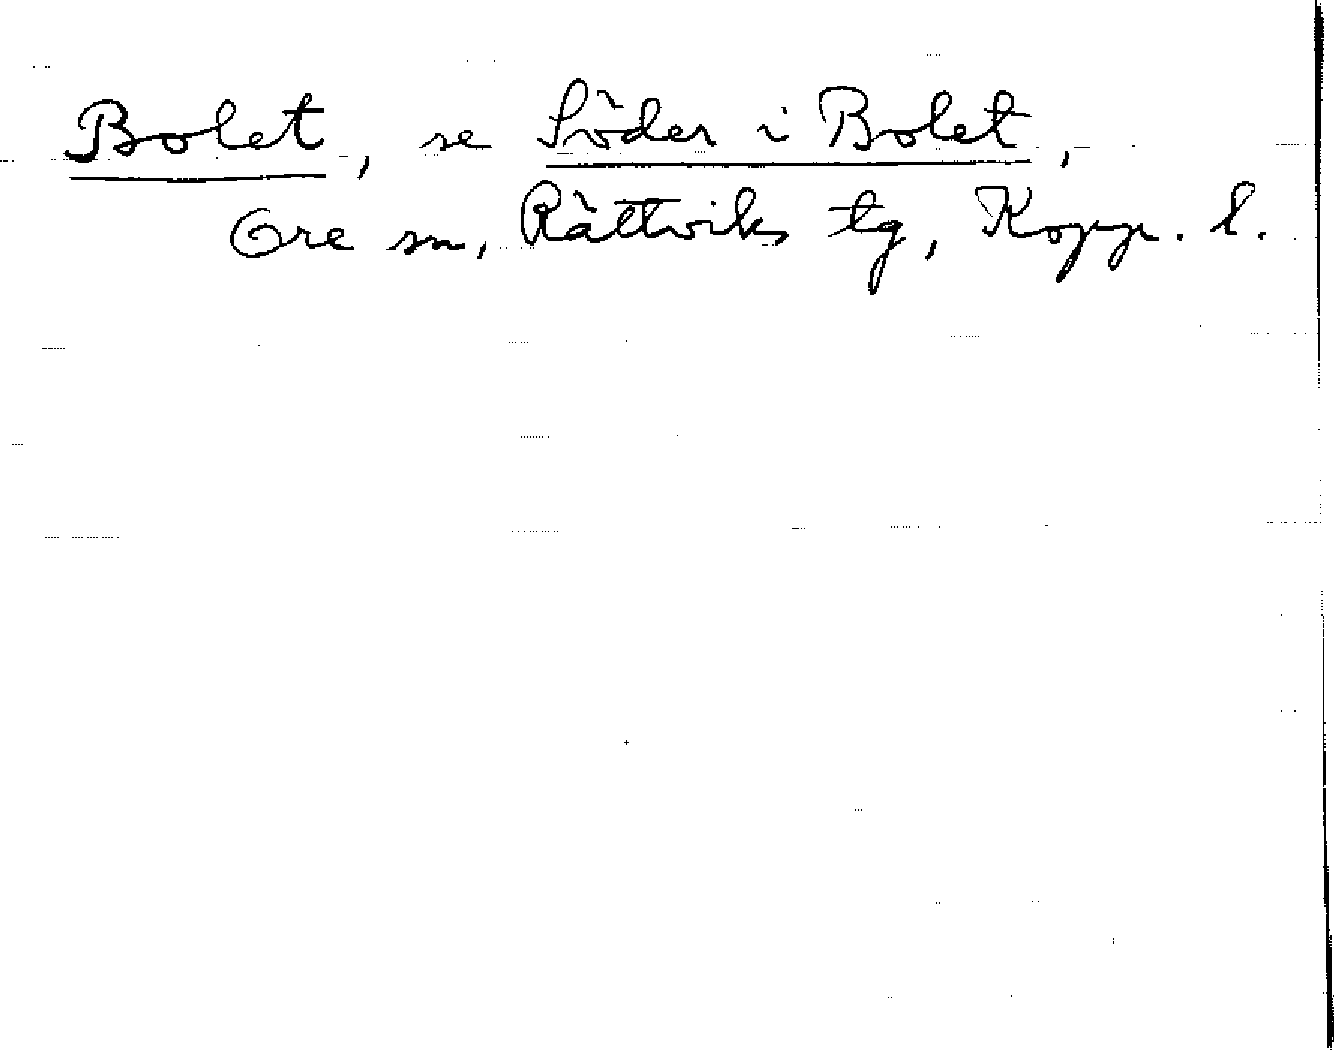 Bolet, se Söder i Bolet,
Ore sn, Rättviks tg, Kopp. l.